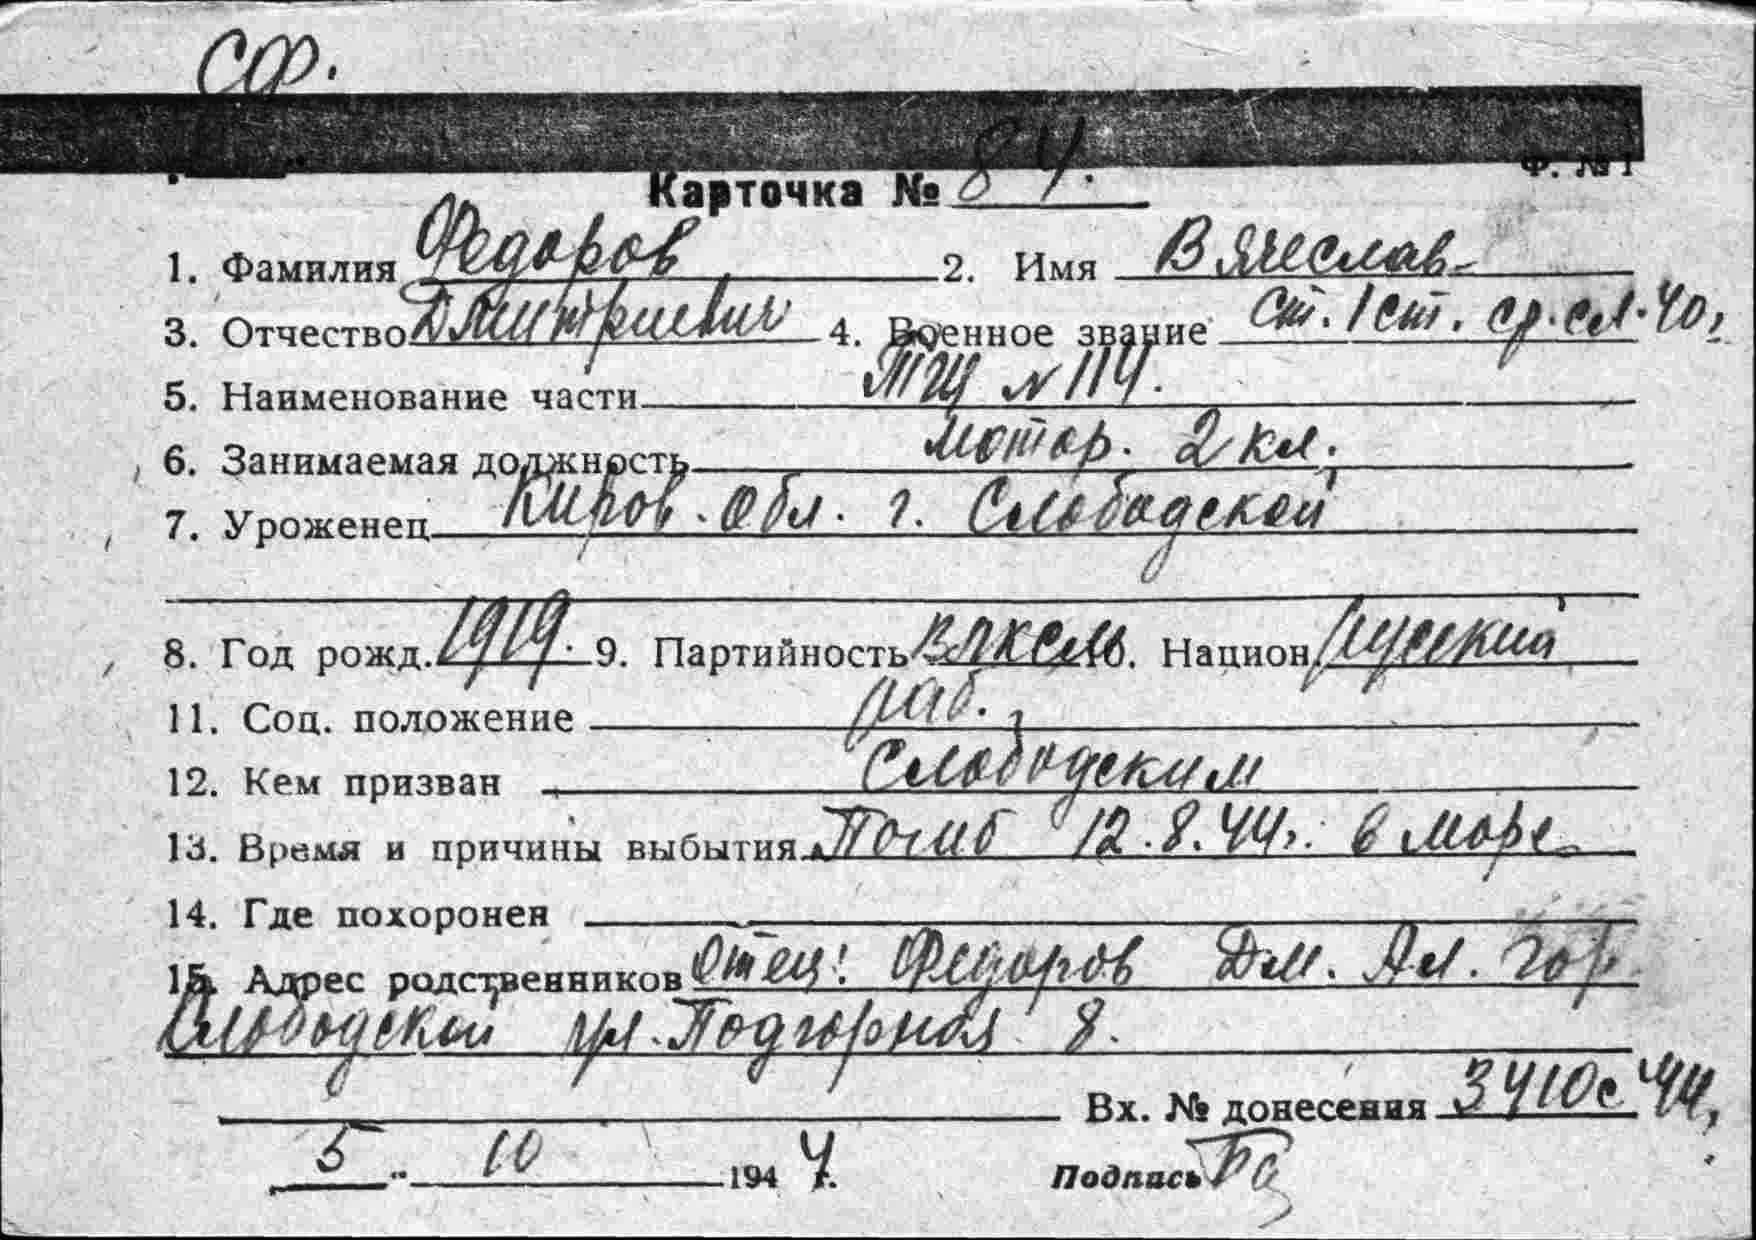 СФ.
Ф. № 1
Карточка № 84.
1. Фамилия Федоров 2. Имя Вячеслав
3. Отчество Дмитриевич 4. Военное звание ст. 1 ст. ср. сл. 40 г.
5. Наименование части ТЩ № 114.
6. Занимаемая должность мотор. 2 кл.
7. Уроженец Киров. обл. г. Слободской
8. Год рожд. 1919. 9. Партийность ВЛКСМ 10. Национ. русский
11. Соц. положение раб.
12. Кем призван Слободским
13. Время и причины выбытия Погиб 12.8.44 г. в море
14. Где похоронен
15. Адрес родственников отец: Федоров Дм. Ал. гор.
Слободской ул. Подгорная 8.
Вх. № донесения 3410с 44 г.
5 " 10 1944 г. Подпись